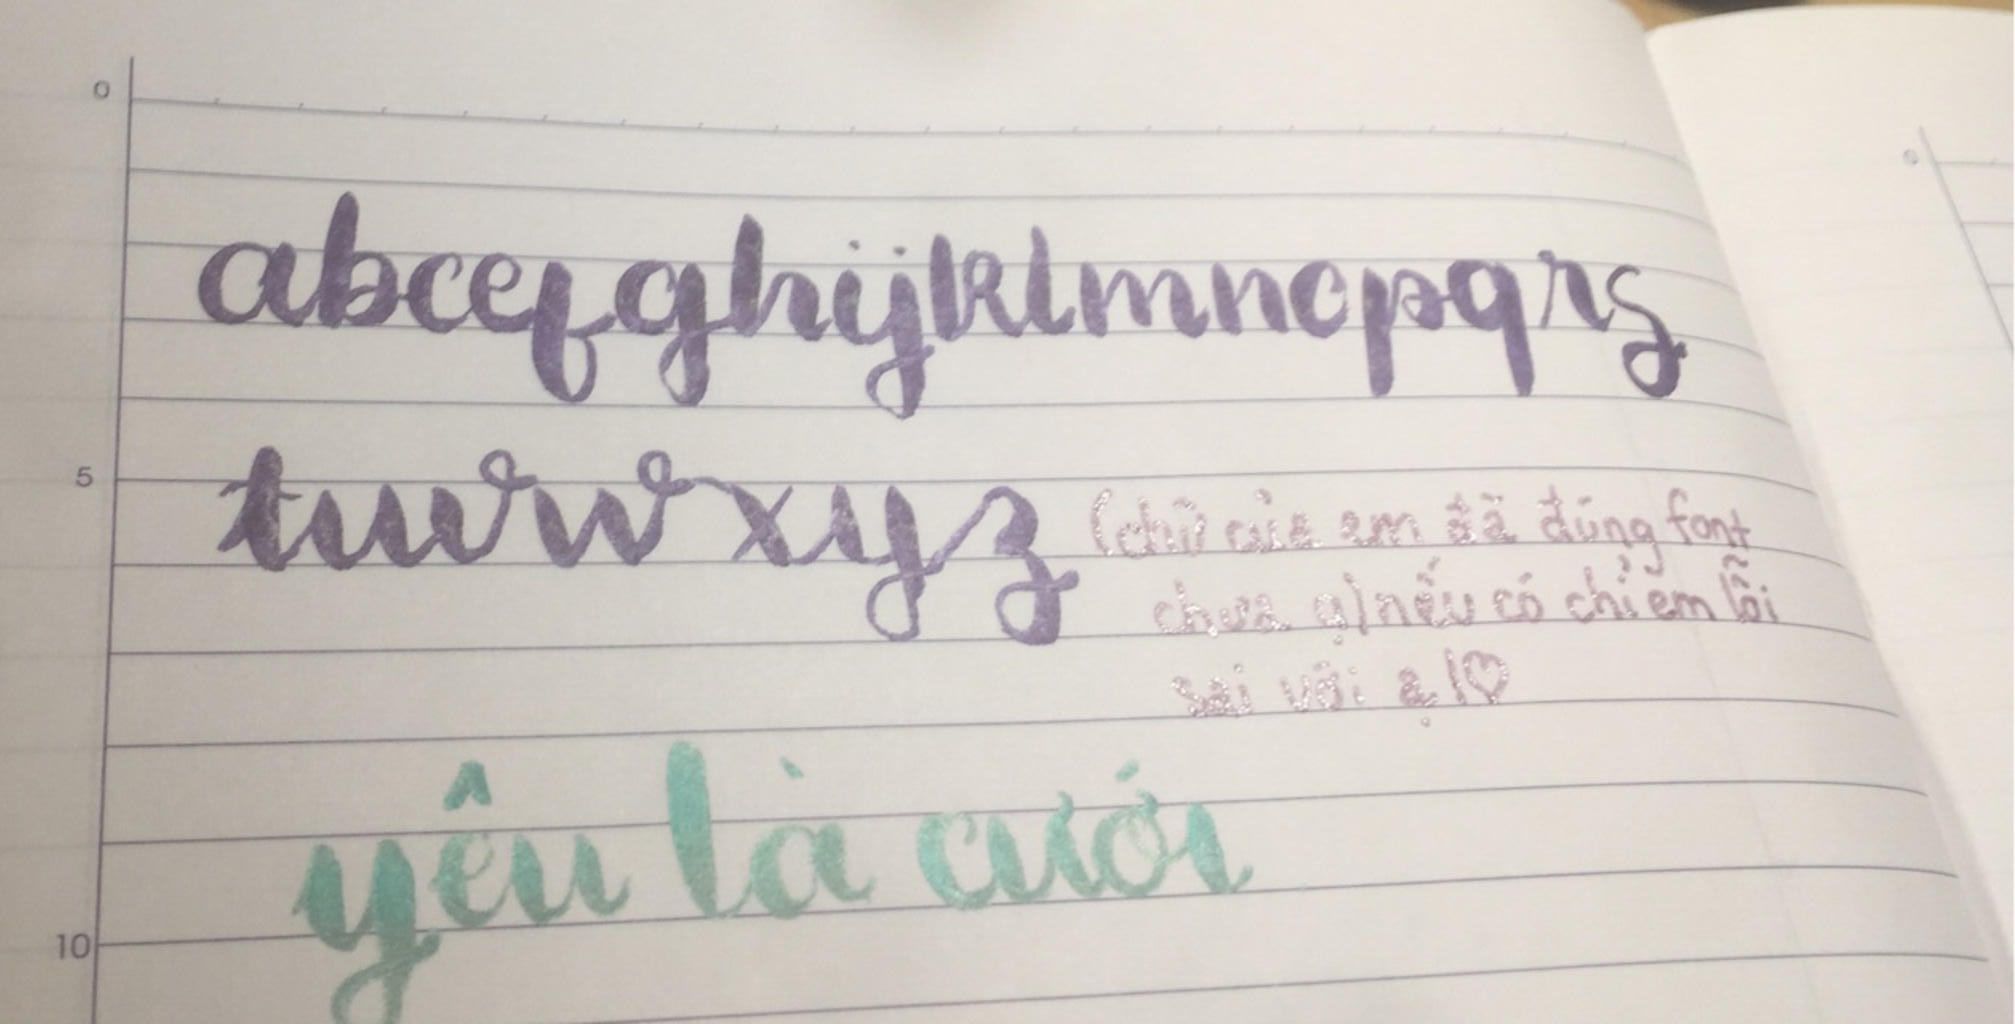 0
abcefghijklmnopqrs
5
tuvwxyz (chữ của em đã đúng font
chưa ạ) nếu có chỉ em lỗi
sai với ạ!♡
yêu là cưới
10
0